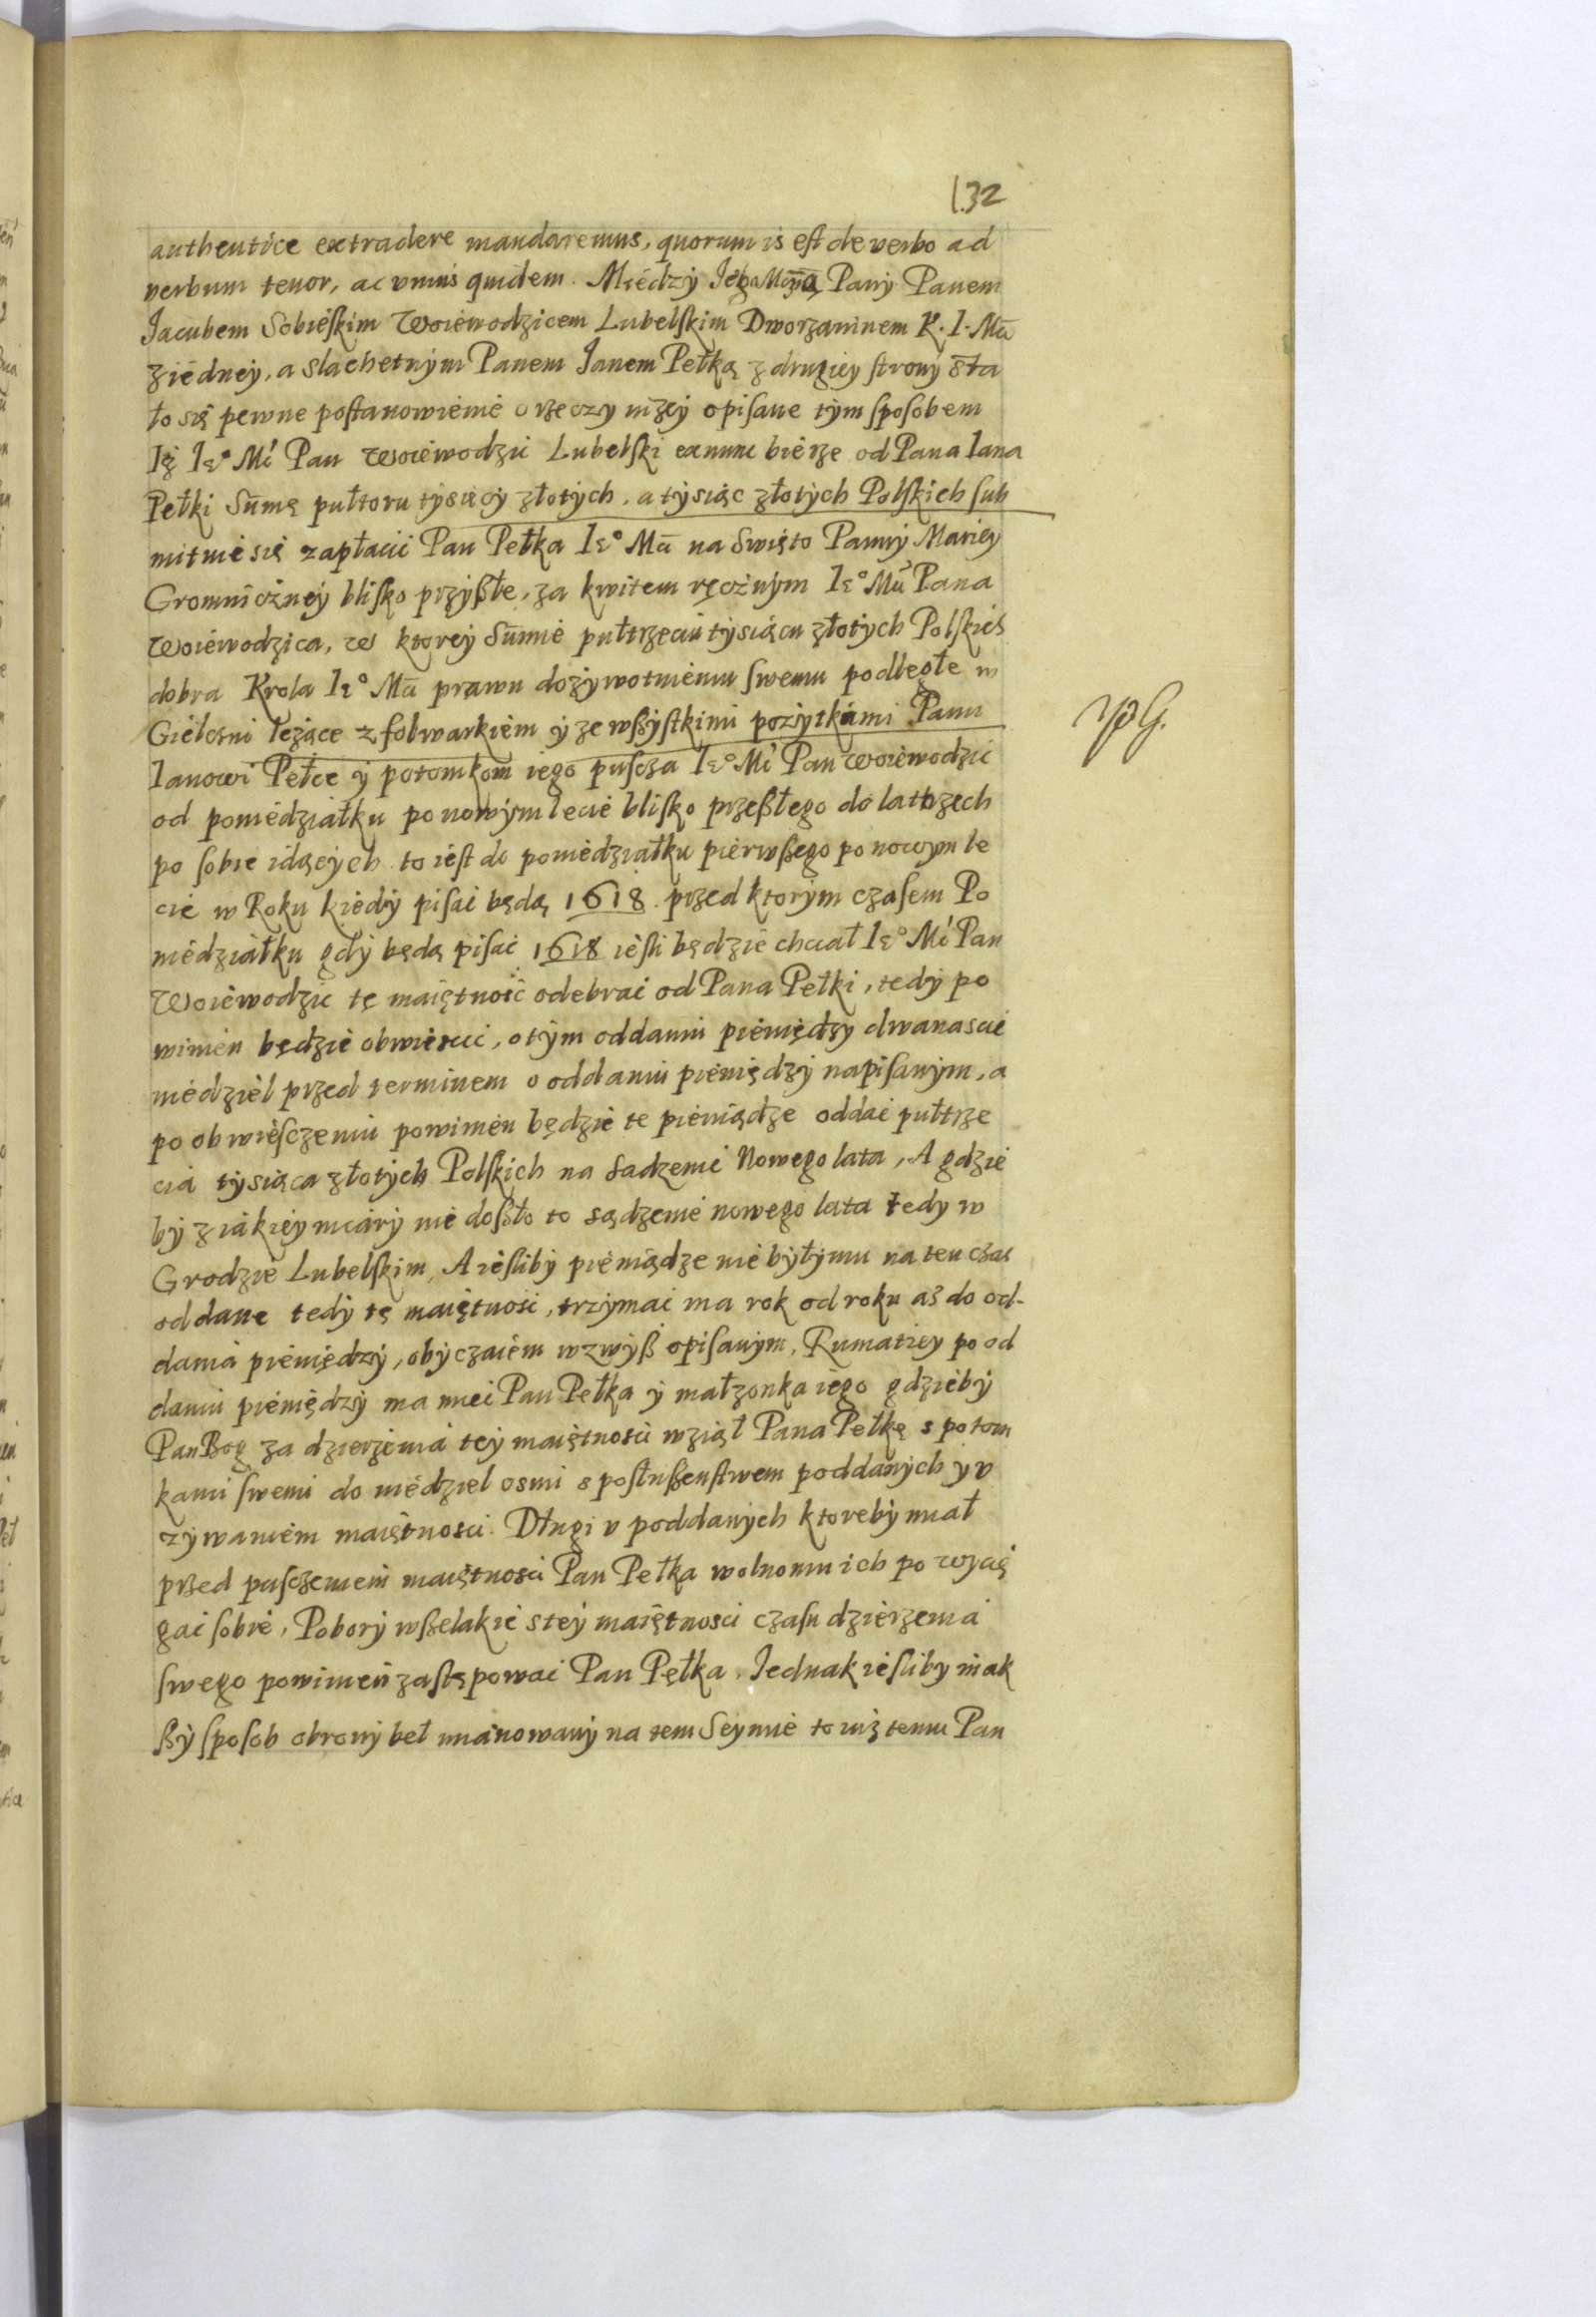 132
authentice extradere mandaremus, quorum is est de verbo ad
verbum tenor, ac unius quidem. Między Panem
Jacubem Sobieskim Woiewodzicem Lubelskim Dworzaninem K. I. Mci
z iedney, a slachetnym Panem Janem Pełką z drugiey strony sta
ło się pewne postanowienie o rzeczy niżey opisane tym sposobem
Iż Ieº Mć Pan Woiewodzic Lubelski ex nunc bierze od Pana Iana
Pełki Summę pułtoru tysięcy złotych, a tysiąc złotych Polskich sub
mituie się zapłacić Pan Pełka Ieº Mci na Swięto Panny Mariey
Gromniczney blisko przyszłe, za kwitem ręcznym Ieº Mci Pana
Woiewodzica, w ktorey Summie pułtrzeciu tysiącu złotych Polskich
dobra Krola Ieº Mci prawu dożywotniemu swemu podległe w
Giełczwi leżące z folwarkiem y ze wszystkimi pożytkami Panu
Ianowi Pełce y potomkom iego puszcza Ieº Mć Pan Woiewodzic
od poniedziałku po nowym lecie blisko przeszłego do lat trzech
po sobie idących to iest do poniedziałku pierwszego po nowym le
cie w Roku kiedy pisać będą 1618. przed ktorym czasem Po
niedziałku gdy będą pisać 1618 iesli będzie chciał Ieº Mć Pan
Woiewodzic tę maiętność odebrać od Pana Pełki, tedy po
winien będzie obwieścić, o tym oddaniu pieniędzy dwanascie
niedziel przed terminem o oddaniu pieniędzy napisanym, a
po obwieszczeniu powinien będzie te pieniądze oddać pułtrze
cia tysiąca złotych Polskich na sadzenie Nowego lata, A gdzie
by z iakiey miary nie doszło to sądzenie nowego lata tedy w
Grodzie Lubelskim, A iesliby pieniądze nie były mu na ten czas
oddane tedy tę maiętność, trzymać ma rok od roku asz do od-
dania pieniędzy, obyczaiem wzwysz opisanym, Rumatiey po od
daniu pieniędzy ma mieć Pan Pełka y małzonka iego gdzieby
Pan Bog za dzierżenia tey maiętnosci wziął Pana Pełkę s potom
kami swemi do niedziel osmi s posłuszenstwem poddanych y u
zywaniem maiętnosci. Długi u poddanych ktoreby miał
przed puszczeniem maiętnosci Pan Pełka wolno mu ich po wycię
gać sobie, Pobory wszelakie s tey maiętnosci czasu dzierżenia
swego powinien zastępować Pan Pełka. Iednak iesliby inak
szy sposob obrony beł mianowany na tem Seymie to iuż temu Pan